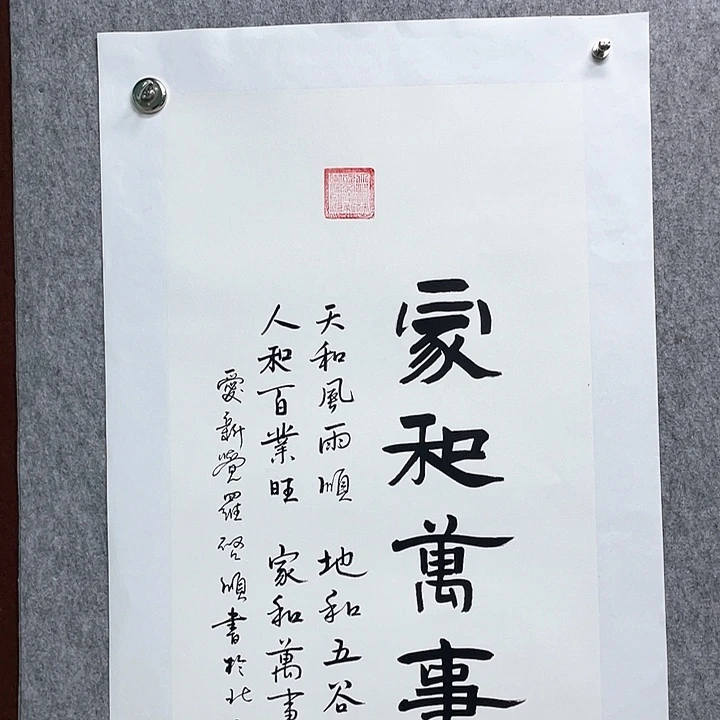 家和萬事
天和風雨順 地和五谷
人和百業旺 家和萬事
愛新覺羅啓順書於北